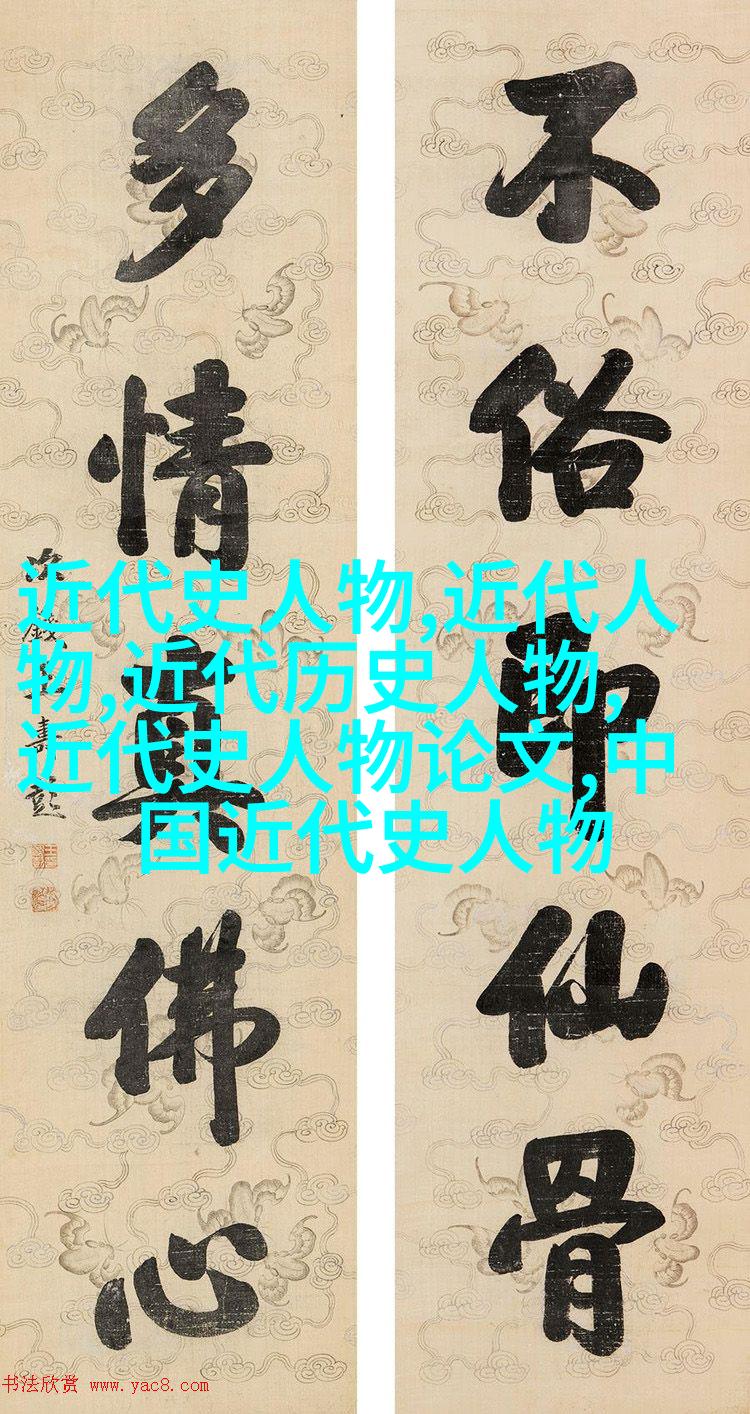 不俗即仙骨
多情真佛心
壽彭
近代史人物,近代人
物,近代历史人物,
近代史人物论文,中
国近代史人物
书法欣赏 www.yac8.com